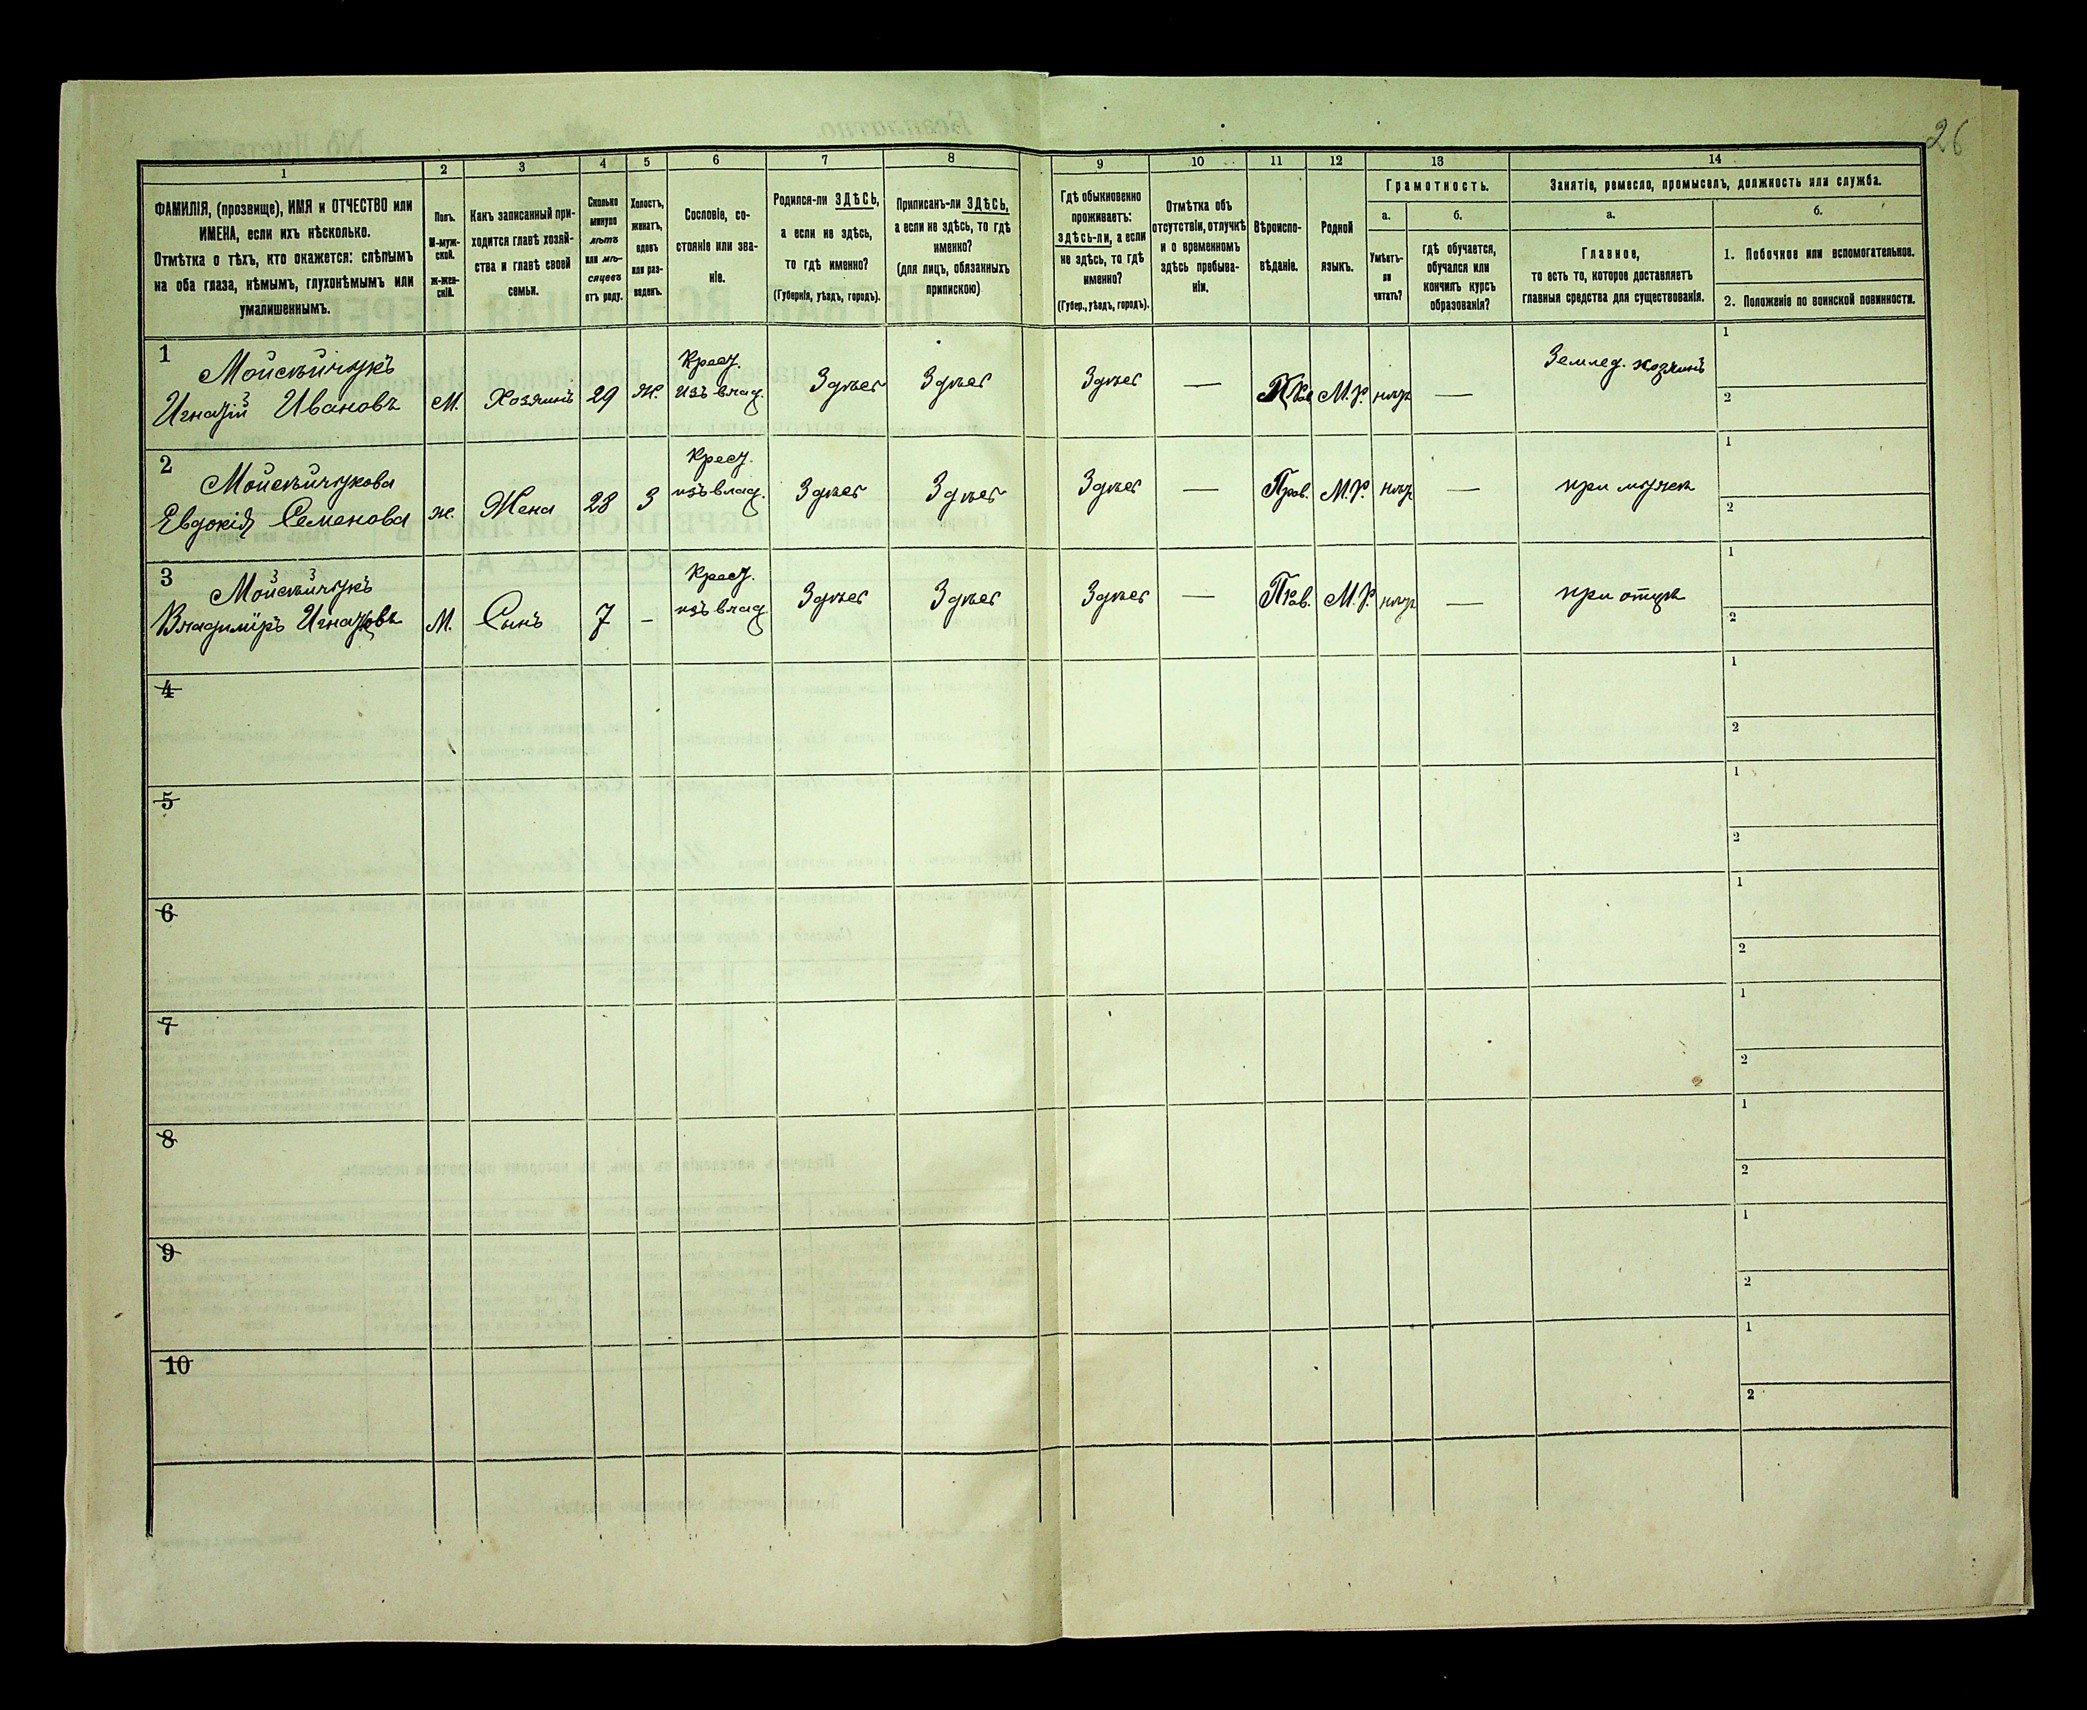 26
1 2 3 4 5 6 7 8 9 10 11 12 13 14
ФАМИЛІЯ, (прозвище), ИМЯ и ОТЧЕСТВО или
ИМЕНА, если ихъ нѣсколько.
Отмѣтка о тѣхъ, кто окажется: слѣпымъ
на оба глаза, нѣмымъ, глухонѣмымъ или
умалишеннымъ.
Полъ.
М-муж-
ской.
Ж-жен-
скій.
Какъ записанный при-
ходится главѣ хозяй-
ства и главѣ своей
семьи.
Сколько
минуло
лѣтъ
или мѣ-
сяцевъ
отъ роду.
Холостъ,
женатъ,
вдовъ
или раз-
веденъ.
Сословіе, со-
стояніе или зва-
ніе.
Родился-ли ЗДѢСЬ,
а если не здѣсь,
то гдѣ именно?
(Губернія, уѣздъ, городъ).
Приписанъ-ли ЗДѢСЬ,
а если не здѣсь, то гдѣ
именно?
(для лицъ, обязанныхъ
припискою)
Гдѣ обыкновенно
проживаетъ:
здѣсь-ли, а если
не здѣсь, то гдѣ
именно?
(Губер., уѣздъ, городъ).
Отмѣтка объ
отсутствіи, отлучкѣ
и о временномъ
здѣсь пребыва-
ніи.
Вѣроиспо-
вѣданіе.
Родной
языкъ.
Грамотность.
а.
Умѣетъ-
ли
читать?
б.
гдѣ обучается,
обучался или
кончилъ курсъ
образованія?
Занятіе, ремесло, промыселъ, должность или служба.
а.
Главное,
то есть то, которое доставляетъ
главныя средства для существованія.
б.
1. Побочное или вспомогательное.
2. Положеніе по воинской повинности.
1 Мойсейчукъ
Игнатій Ивановъ
М. Хозяинъ 29 ж.
Крест.
изъ влад.
Здѣсь Здѣсь Здѣсь — Прав. М.Р. нѣтъ —
Землед. хозяинъ
1
2
2 Мойсейчукова
Евдокія Семенова
ж. Жена 28 З
Крест.
изъ влад.
Здѣсь Здѣсь Здѣсь — Прав. М.Р. нѣтъ — при мужѣ
1
2
3 Мойсейчукъ
Владиміръ Игнатовъ
М. Сынъ 7 -
Крест.
изъ влад.
Здѣсь Здѣсь Здѣсь — Прав. М.Р. нѣтъ — при отцѣ
1
2
4
1
2
5
1
2
6
1
2
7
1
2
8
1
2
9
1
2
10
1
2